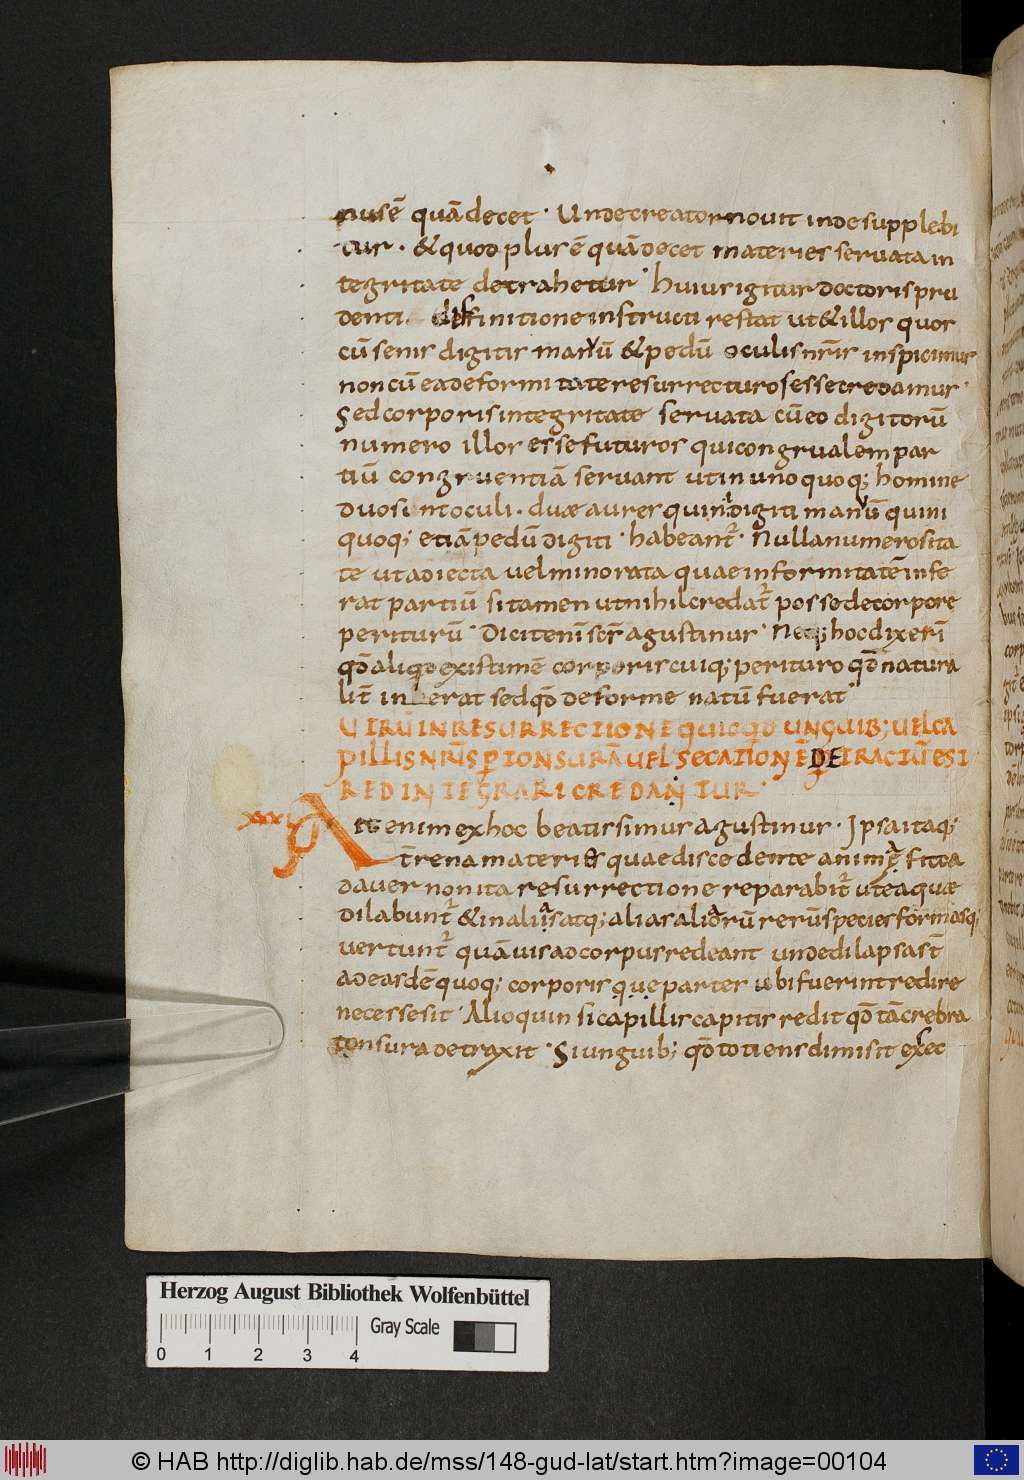 nus ē quā decet · Unde creator novit inde supplebi
tur · & quod plus ē quā decet materies servata in
tegritate detrahetur · huius igitur doctoris pru
denti definitione instructi restat ut & illos quos
cū senis digitis manuū & pedū oculis nr̄is inspicimus
non cū ea deformitate resurrecturos esse credamus ·
Sed corporis integritate servata cū eo digitorū
numero illos esse futuros qui congrualem par
tiū congruentiā servant ut in uno quoq; homine
duo sint oculi · duae aures quini digiti manuū quini
quoq; etiā pedū digiti · habeant̄ · Nulla numerosita
te ut adiecta vel minorata quae informitatē infe
rat partiū si tamen ut nihil credat̄ posse de corpore
periturū · Dicit enī sc̄s agustinus · Neq; hoc dixerī
qd̄ aliqd existimē corporis cuiq; perituro qd̄ natura
lit̄ inerat sed qd̄ deforme natū fuerat ·
UTRŪ IN RESURRECTIONE QUICQD UNGUIB; VEL CA
PILLIS NR̄IS P TONSURĀ VEL SECATIONĒ DETRACTŪ EST
REDINTEGRARI CREDANTUR ·
XXXI Ait enim ex hoc beatissimus agustinus · Ipsa itaq;
t̄rena materies quae discedente animę fit ca
daver non ita resurrectione reparabit̄ ut ea quae
dilabunt̄ & in alias atq; alias aliarū rerū species formasq;
vertunt̄ quāvis ad corpus redeant unde dilapsa st̄
ad easdē quoq; corporis que partes ubi fuerint redire
necesse sit · Alioquin si capillis capitis redit qd̄ tā crebra
tonsura detraxit · Si unguib; qd̄ totiens dimisit exsec
Herzog August Bibliothek Wolfenbüttel
Gray Scale
0 1 2 3 4
© HAB http://diglib.hab.de/mss/148-gud-lat/start.htm?image=00104